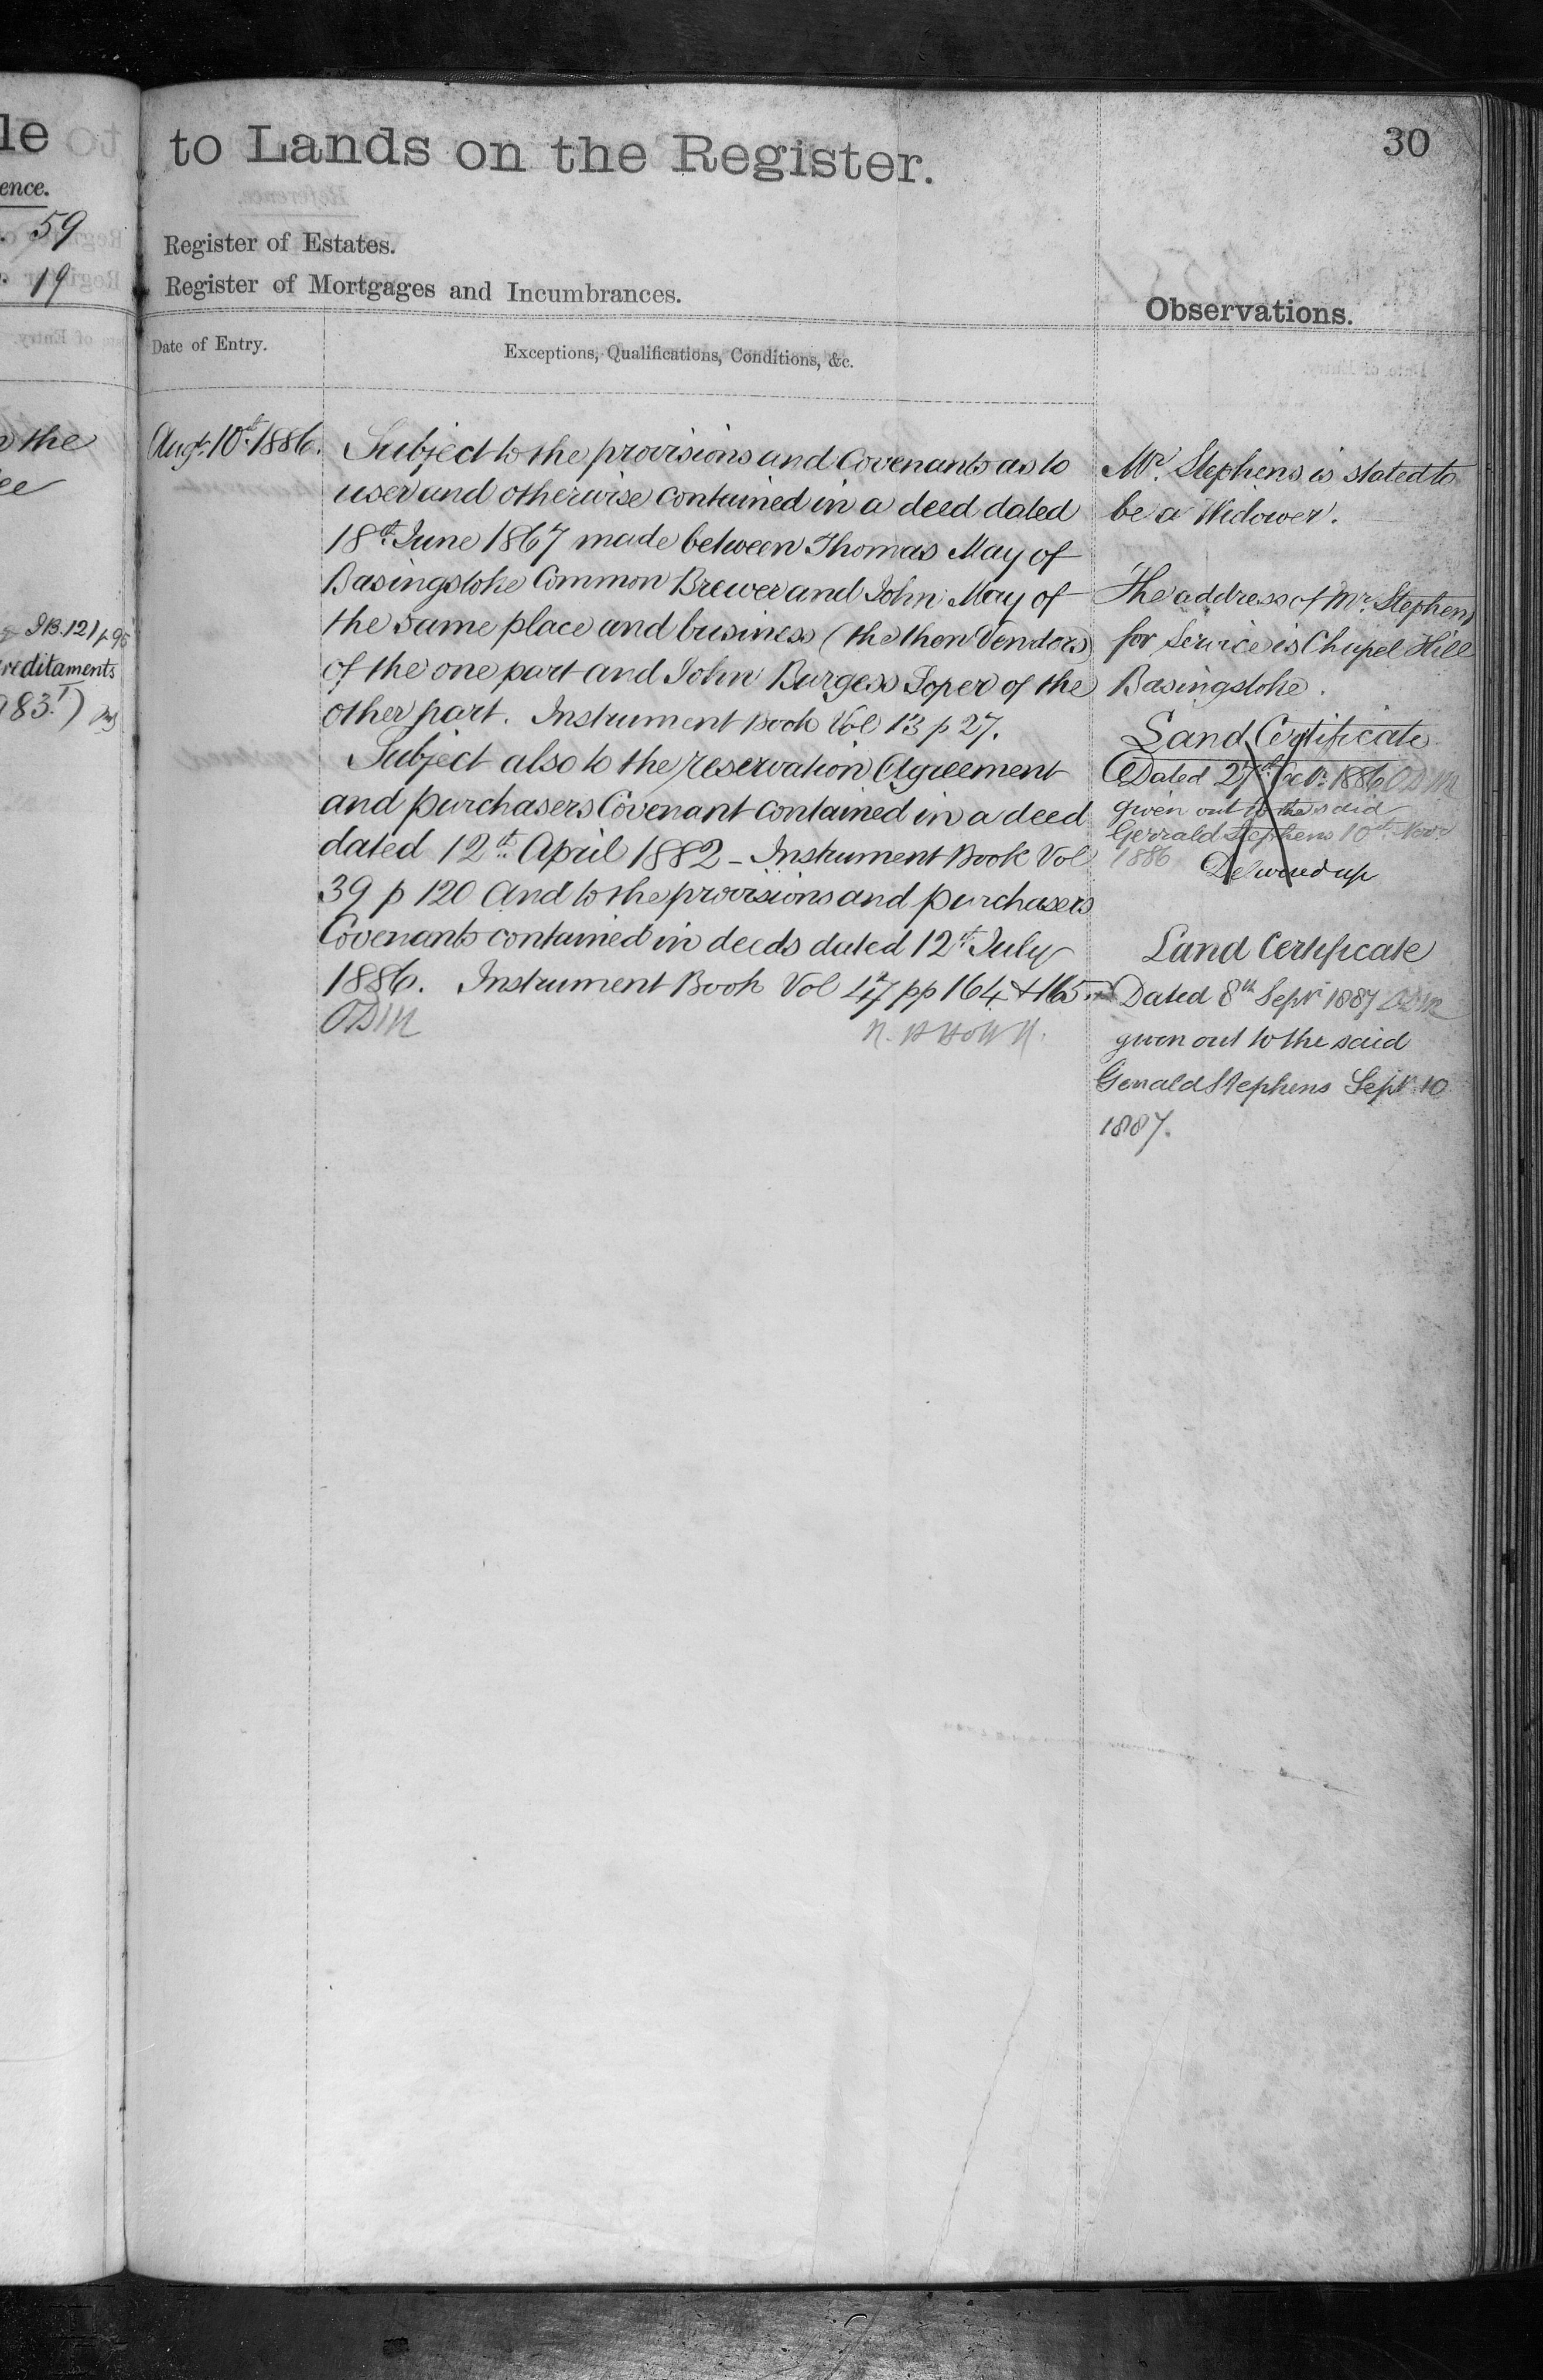 le
ence.
59
19
the
ee
I B. 121 p 95
reditaments
983.)
to Lands on the Register.
30
Register of Estates.
Register of Mortgages and Incumbrances.
Observations.
Date of Entry.
Exceptions, Qualifications, Conditions, &c.
Augt. 10th 1886.
Subject to the provisions and Covenants as to
user and otherwise contained in a deed dated
18th June 1867 made between Thomas May of
Basingstoke Common Brewer and John May of
the same place and business (the then Vendors)
of the one part and John Burgess Soper of the
other part. Instrument Book Vol 13 p 27.
Subject also to the reservation Agreement
and purchasers Covenant contained in a deed
dated 12th April 1882 - Instrument Book Vol
39 p 120 And to the provisions and purchasers
Covenants contained in deeds dated 12th July
1886. Instrument Book Vol 47 pp 164 & 165.
ODM
Mr. Stephens is stated to
be a Widower.
The address of Mr. Stephens
for Service is Chapel Hill
Basingstoke.
Land Certificate
Dated 27th Octr. 1886 ODM
given out to the said
Gerrald Stephens 10th Novr
1886
Delivered up
Land Certificate
Dated 8th Septr 1887 ODM
given out to the said
Gerrald Stephens Septr. 10
1887.